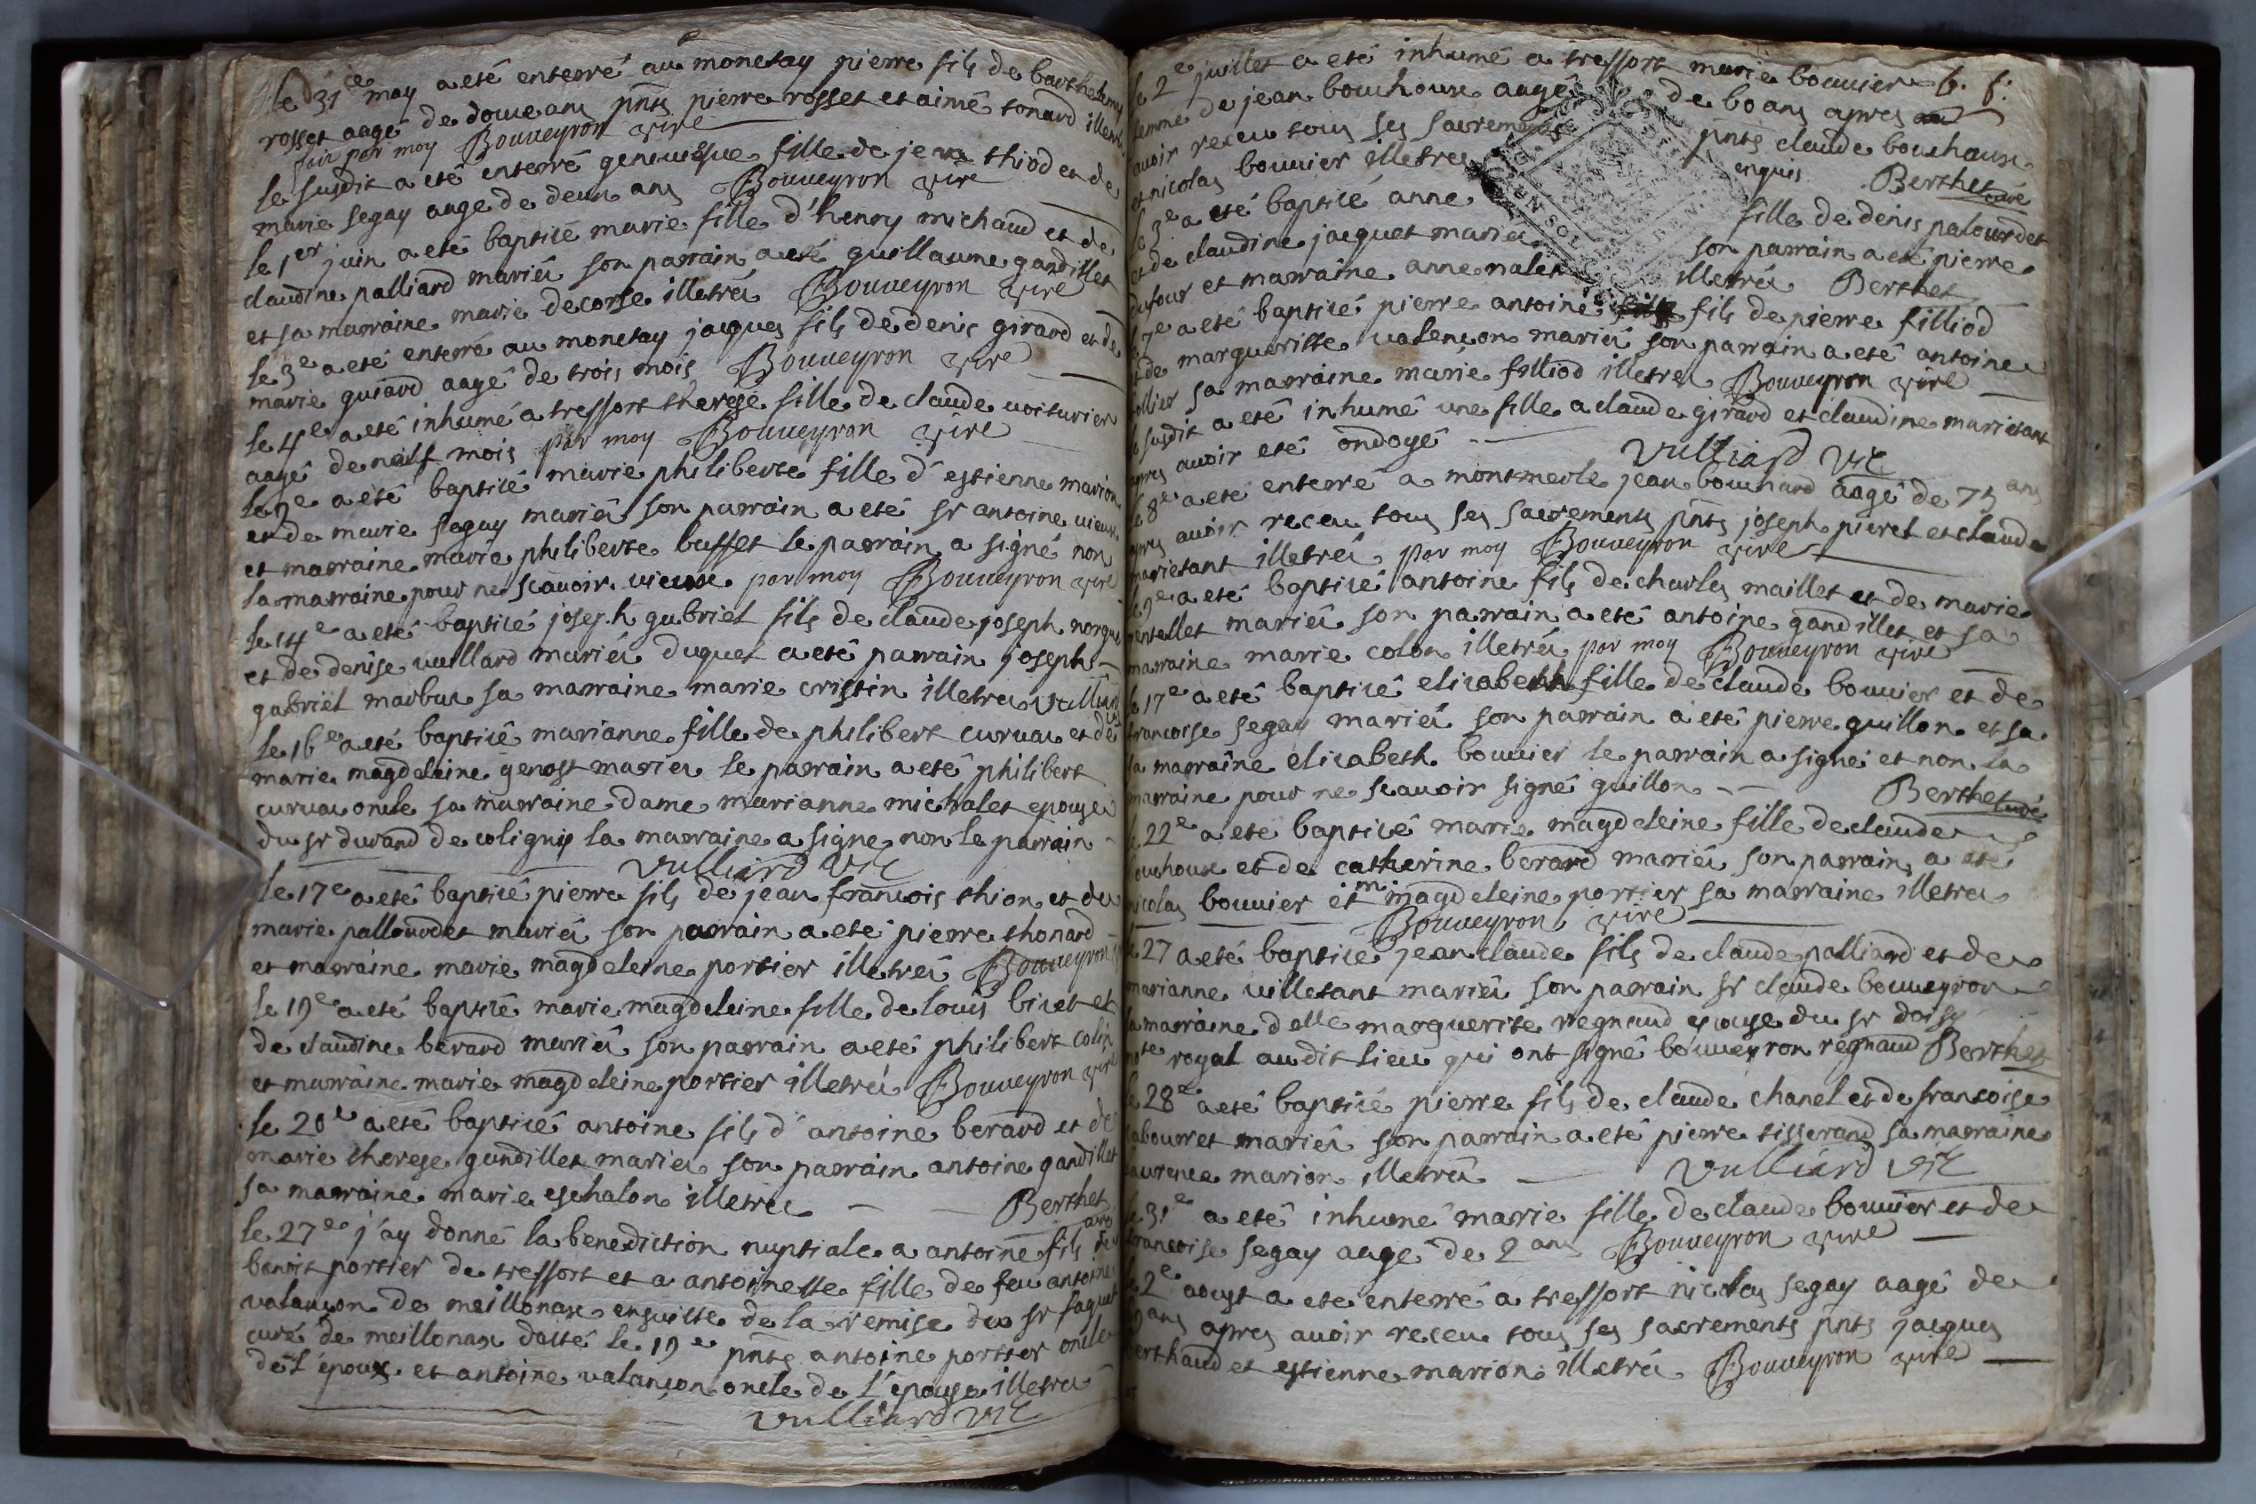 le 31 ce may a eté enterré au monetay pierre fils de barthelemy
rosset aagé de douze ans pnts pierre rosset et aimé tonard illetrés
fait par moy Bouveyron vire
le susdit a eté enterré fille de jean thiod et de
marie segay aage de deux ans Bouveyron vire
le 1er juin a eté baptisé marie fille d'henry michaud et de
claudine palliard mariés son parrain a eté guillaume gandillet
et sa marraine marie decorse illetrés Bouveyron vire
le 3e a eté enterré au monetay jacques fils de denis girard et de
marie guiard aagé de trois mois Bouveyron vire
le 4e a eté inhumé a tressort therese fille de claude voiturier
aagé de neuf mois par moy Bouveyron vire
le 9e a eté baptisé marie philiberte fille d'estienne marion
et de marie segay mariés son parrain a eté sr antoine vieux
et marraine marie philiberte buffet le parrain a signé non
la marraine pour ne scavoir vieux par moy Bouveyron vire
le 14e a eté baptisé joseph gabriel fils de claude joseph
et de denise vuillard mariés duquel a eté parrain joseph
gabriel marbur sa marraine marie cristin illetrés Vulliard
le 16e a eté baptisé marianne fille de philibert curvau et de
marie magdeleine genost mariés le parrain a eté philibert
curvau oncle sa marraine dame marianne michalet epouse
du sr durand de coligny la marraine a signe non le parrain
Vulliard vic
le 17e a eté baptisé pierre fils de jean francois thion et de
marie pallourdet mariés son parrain a eté pierre thonard
et marraine marie magdeleine portier illetrés Bouveyron
le 19e a eté baptisé marie magdeleine fille de louis bivet et
de claudine berard mariés son parrain a eté philibert colin
et marraine marie magdeleine portier illetrés Bouveyron vire
le 20e a eté baptisé antoine fils d'antoine berard et de
marie therese gandillet mariés son parrain antoine gandillet
sa marraine marie eschalon illetrés Berthet
curé
le 27e j'ay donné la benediction nuptiale a antoine fils de
benoit portier de tressort et a antoinette fille de feu antoine
valançon de meillonax ensuitte de la remise du sr faguet
curé de meillonax datté le 19e pnts antoine portier oncle
de l'époux et antoine valançon oncle de l'épouse illetrés
Vulliard vic
le 2e juillet a eté inhumé a tressort marie bouvier b. f.
femme de jean bouchoux aagé de 60 ans apres
avoir receu tous ses sacrements pnts claude bouchoux
et nicolas bouvier illetrés enquis Berthet curé
le 3e a eté baptisé anne fille de denis palourdet
et de claudine jacquet mariés son parrain a eté pierre
dufour et marraine anne nalet illetrés Berthet
le 7e a eté baptisé pierre antoine fils de pierre filliod
et de margueritte valençon mariés son parrain a eté antoine
sa marraine marie filliod illetrés Bouveyron vire
le susdit a eté inhumé une fille a claude girard et claudine marietant
apres avoir eté ondoyé Vulliard vic
le 8e a eté enterré a montmerle jean bouchard aagé de 75 ans
apres avoir receu tous ses sacrements pnts joseph pieret et claude
marietant illetrés par moy Bouveyron vire
le 9e a eté baptisé antoine fils de charles maillet et de marie
mariés son parrain a eté antoine gandillet et sa
marraine marie colon illetrés par moy Bouveyron vire
le 17e a eté baptisé elisabeth fille de claude bouvier et de
francoise segay mariés son parrain a eté pierre guillon et sa
la marraine elisabeth bouvier le parrain a signé et non la
marraine pour ne scavoir signé guillon Berthet curé
le 22e a eté baptisé marie magdeleine fille de claude
bouchoux et de catherine berard mariés son parrain a eté
nicolas bouvier et m magdeleine portier sa marraine illetrés
Bouveyron vire
le 27 a eté baptisé jean claude fils de claude palliard et de
marianne villetant mariés son parrain sr claude bouveyron
la marraine delle marguerite regnaud epouse du sr doisy
nore royal audit lieu qui ont signé bouveyron regnaud Berthet
le 28e a eté baptisé pierre fils de claude chanel et de francoise
labourret mariés son parrain a eté pierre tisserand sa marraine
laurence marion illetrés Vulliard vic
le 31e a eté inhumé marie fille de claude bouvier et de
francoise segay aagé de 2 ans Bouveyron vire
le 2e aoust a eté enterré a tressort nicolas segay aagé de
ans apres avoir receu tous ses sacrements pnts jacques
berthaud et estienne marion illetrés Bouveyron vire